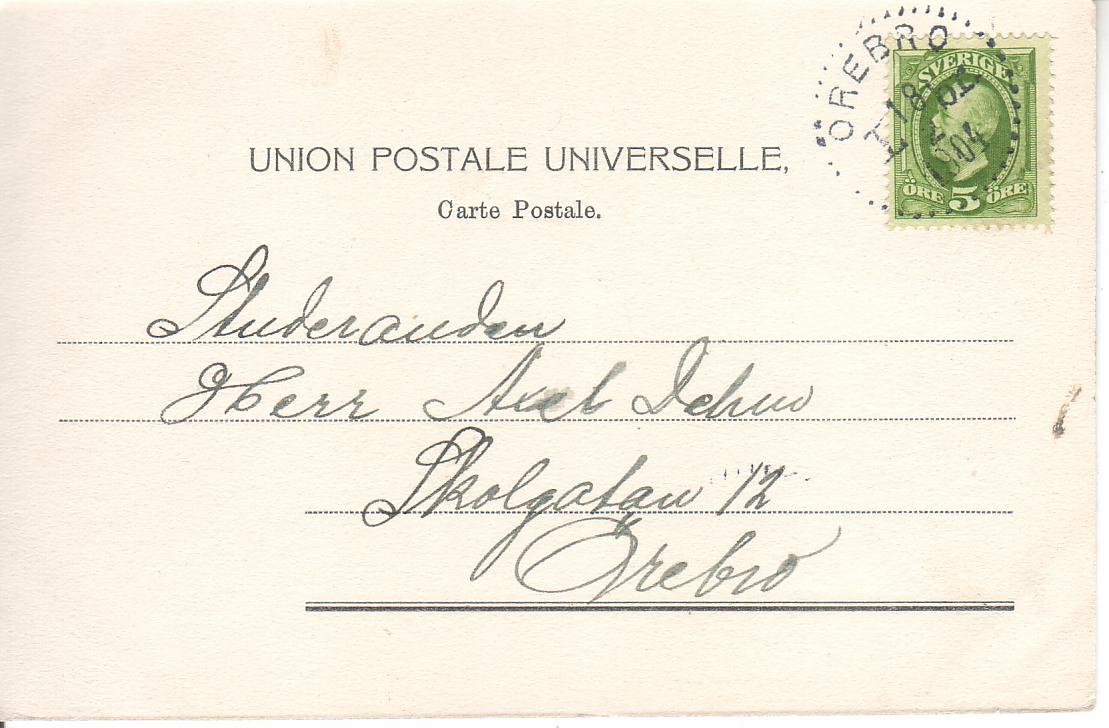 ÖREBRO
SVERIGE
ÖRE 5 ÖRE
UNION POSTALE UNIVERSELLE,
Carte Postale.
Studeranden
Herr Axel
Skolgatan 12
Örebro